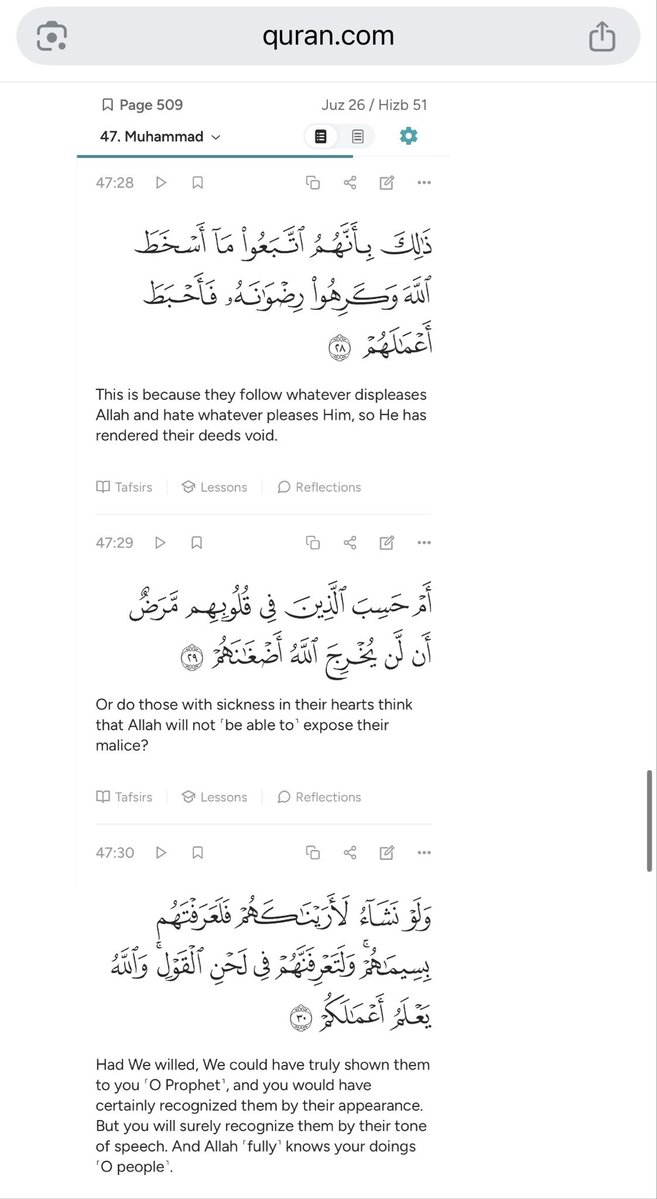 quran.com
Page 509
Juz 26 / Hizb 51
47. Muhammad
47:28
ذَٰلِكَ بِأَنَّهُمُ ٱتَّبَعُوا۟ مَآ أَسْخَطَ
ٱللَّهَ وَكَرِهُوا۟ رِضْوَٰنَهُۥ فَأَحْبَطَ
أَعْمَـٰلَهُمْ ٢٨
This is because they follow whatever displeases
Allah and hate whatever pleases Him, so He has
rendered their deeds void.
Tafsirs
Lessons
Reflections
47:29
أَمْ حَسِبَ ٱلَّذِينَ فِى قُلُوبِهِم مَّرَضٌ
أَن لَّن يُخْرِجَ ٱللَّهُ أَضْغَـٰنَهُمْ ٢٩
Or do those with sickness in their hearts think
that Allah will not ˹be able to˺ expose their
malice?
Tafsirs
Lessons
Reflections
47:30
وَلَوْ نَشَآءُ لَأَرَيْنَـٰكَهُمْ فَلَعَرَفْتَهُم
بِسِيمَـٰهُمْ ۚ وَلَتَعْرِفَنَّهُمْ فِى لَحْنِ ٱلْقَوْلِ ۚ وَٱللَّهُ
يَعْلَمُ أَعْمَـٰلَكُمْ ٣٠
Had We willed, We could have truly shown them
to you ˹O Prophet˺, and you would have
certainly recognized them by their appearance.
But you will surely recognize them by their tone
of speech. And Allah ˹fully˺ knows your doings
˹O people˺.